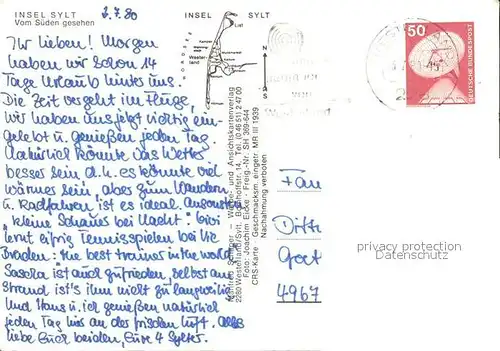 INSEL SYLT
Vom Süden gesehen
2.7.80
Ihr Lieben! Morgen
haben wir schon 14
Tage Urlaub hinter uns.
Die Zeit vergeht im Fluge,
wir haben uns jetzt richtig ein-
gelebt u. genießen jeden Tag.
Natürlich könnte das Wetter
besser sein d.h. es könnte viel
wärmer sein, aber zum Wandern
u. Radfahren ist es ideal. Ansonsten
"kleine Schauer bei Nacht".
lernt eifrig Tennisspielen bei
Broden: the best trainer in the world
Sascha ist auch zufrieden, selbst am
Strand ist's ihm nicht zu langweilig
Und Hans u. ich genießen natürlich
jeden Tag hier an der frischen Luft. Alles
liebe Euch beiden, Eure 4 Sylter.
INSEL SYLT
NORDSEE
Westerland
Manfred Werbe- und Ansichtskartenverlag
2280 Westerland/Sylt, Bahnhofstr. 14, Tel. (0 46 51) 2 47 00
Foto: Joachim Eicke - Freig.-Nr. SH 369-644
CRS-Karte Geschmacksm. eingetr. MR III 1939
Nachahmung verboten
50
DEUTSCHE BUNDESPOST
4967
privacy protection
Datenschutz